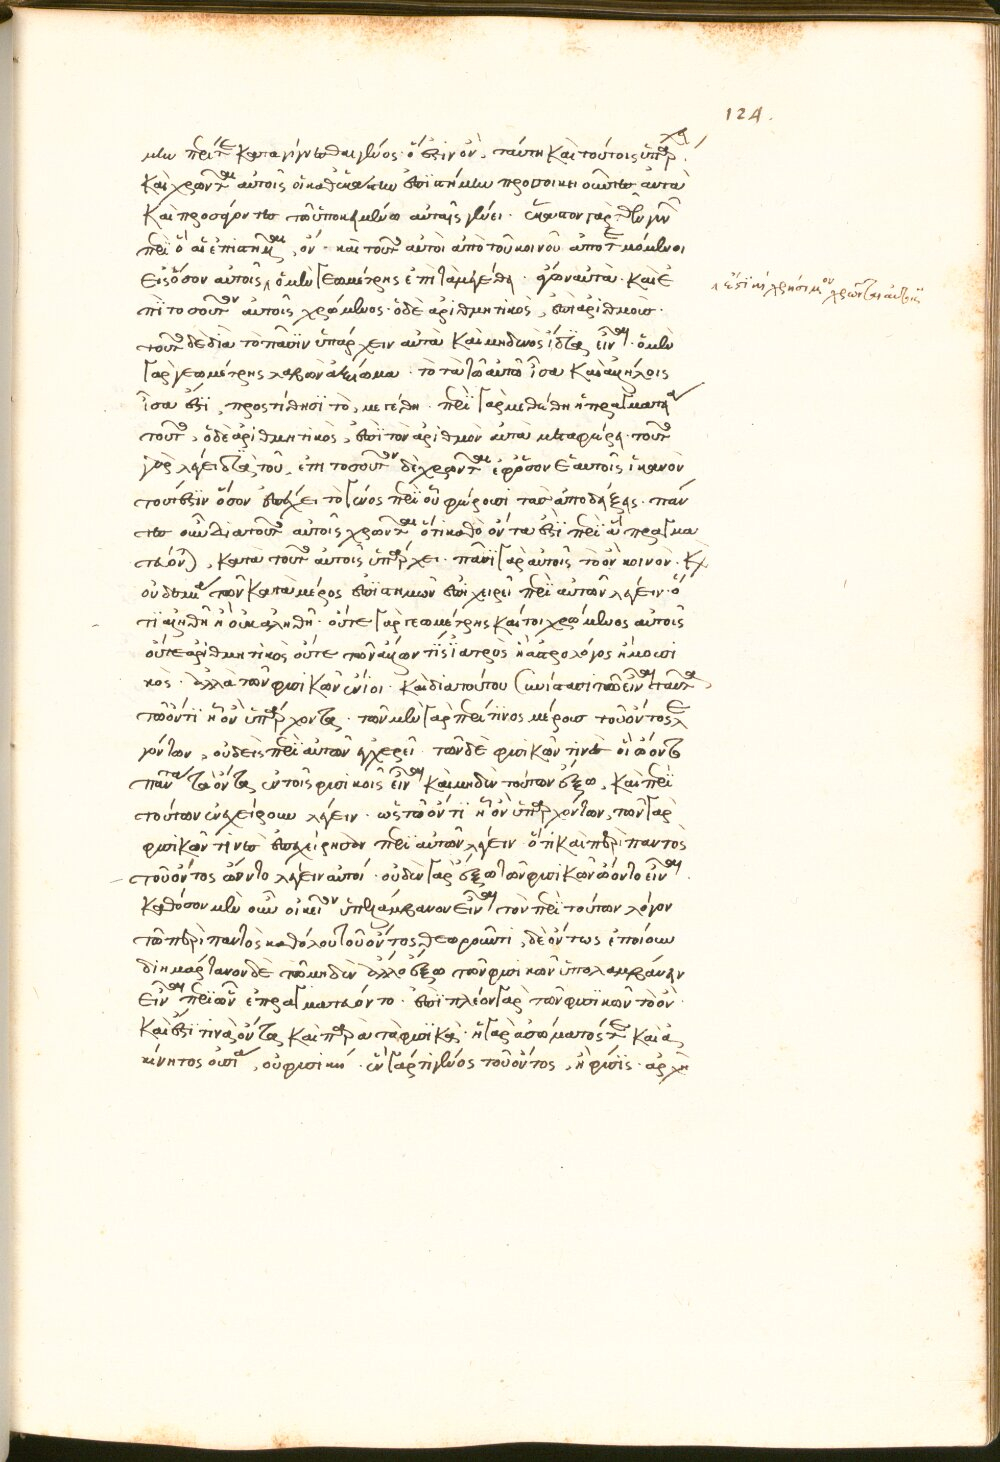 μὲν περί τε κατά τι γίνεσθαι γένος ὅ ἐστιν ὄν, ταύτη καὶ τούτοις ὑπάρχει.
καὶ χρῶνται αὐτοῖς οἱ καθ' ἑκάστην ἐπιστήμην προσοικειοῦντες αὐτὰ
καὶ προσάγοντες τῷ ὑποκειμένῳ αὐταῖς γένει. ἕκαστον γὰρ τῶν γενῶν
περὶ ὃ αἱ ἐπιστῆμαι, ὄν. καὶ τοῦτο αὐτοὶ ἀπὸ τοῦ κοινοῦ ἀποτεμόμενοι
εἰς ὅσον αὐτοῖς, ὁ μὲν γεωμέτρης ἐπὶ τὰ μεγέθη φέρων αὐτὰ. καὶ ἐ
ἐστὶ χρήσιμον χρῶνται αὐτοῖς
πὶ τοσοῦτον αὐτοῖς χρώμενος. ὁ δὲ ἀριθμητικὸς, ἐπὶ ἀριθμοῖς.
τοῦτο δὲ διὰ τὸ πᾶσιν ὑπάρχειν αὐτὰ καὶ μηδενὸς ἴδια εἶναι. ὁ μὲν
γὰρ γεωμέτρης λαβὼν ἀξίωμα. τὸ τὰ τῷ αὐτῷ ἴσα καὶ ἀλλήλοις
ἴσα ἐστὶ, προστίθησι τὸ, μεγέθη. περὶ γὰρ μεγέθη ἡ πραγματεία
τούτου, ὁ δὲ ἀριθμητικὸς, ἐπὶ τὸν ἀριθμὸν αὐτὰ μεταφέρει. τοῦτο
γὰρ λέγει διὰ τοῦ, ἐπὶ τοσοῦτον δὲ χρῶνται ἐφ' ὅσον ἑαυτοῖς ἱκανὸν
τοῦτ' ἔστιν ὅσον ἐπέχει τὸ γένος περὶ οὗ φέρουσι τὰς ἀποδείξεις. πάν
τες οὖν διὰ τοῦτο αὐτοῖς χρῶνται ὅτι καθὸ ὄντα ἐστὶ περὶ ἃ πραγμα
τεύονται, κατὰ τοῦτο αὐτοῖς ὑπάρχει. πᾶσι γὰρ αὐτοῖς τὸ ὂν κοινόν. καὶ
οὐδεμία τῶν κατὰ μέρος ἐπιστημῶν ἐπιχειρεῖ περὶ αὐτῶν λέγειν. ὅ
τι ἀληθῆ ἢ οὐκ ἀληθῆ. οὔτε γὰρ γεωμέτρης καίτοι χρώμενος αὐτοῖς
οὔτε ἀριθμητικὸς οὔτε τῶν ἄλλων τις ἰατρὸς ἢ ἀστρολόγος ἢ μουσι
κὸς. ἀλλὰ τῶν φυσικῶν ἔνιοι. καὶ διὰ τούτου συνίστησι τὸ εἶναι ταῦτα
τῷ ὄντι ᾗ ὂν ὑπάρχοντα. τῶν μὲν γὰρ περί τινος μέρους τοῦ ὄντος λε
γόντων, οὐδεὶς περὶ αὐτῶν ἐγχειρεῖ. τῶν δὲ φυσικῶν τινὲς οἳ ᾤοντο
πάντα τὰ ὄντα ἐν τοῖς φυσικοῖς εἶναι καὶ μηδὲν τούτων ἔξω, καὶ περὶ
τούτων ἐνεχείρουν λέγειν. ὡς τῷ ὄντι ᾗ ὂν ὑπαρχόντων, τῶν γὰρ
φυσικῶν τινὲς ἐπεχείρησαν περὶ αὐτῶν λέγειν. ὅτι καὶ περὶ παντὸς
τοῦ ὄντος ᾤοντο λέγειν αὐτοί. οὐδὲν γὰρ ἔξω τῶν φυσικῶν ᾤοντο εἶναι.
καθόσον μὲν οὖν οἰκεῖον ὑπελάμβανον εἶναι τὸν περὶ τούτων λόγον
τῷ περὶ παντὸς καθόλου τοῦ ὄντος θεωροῦντι, δεόντως ἐποίουν
διημάρτανον δὲ τῷ μηδὲν ἄλλο ἔξω τῶν φυσικῶν ὑπολαμβάνειν
εἶναι περὶ ὧν ἐπραγματεύοντο. ἐπὶ πλέον γὰρ τῶν φυσικῶν τὸ ὄν.
καὶ ἔστι τινὰ ὄντα καὶ παρὰ τὰ φυσικά. ἡ γὰρ ἀσώματός τε καὶ ἀ
κίνητος οὐσία, οὐ φυσική. ἓν γάρ τι γένος τοῦ ὄντος, ἡ φύσις. ἀρχὴ
124.